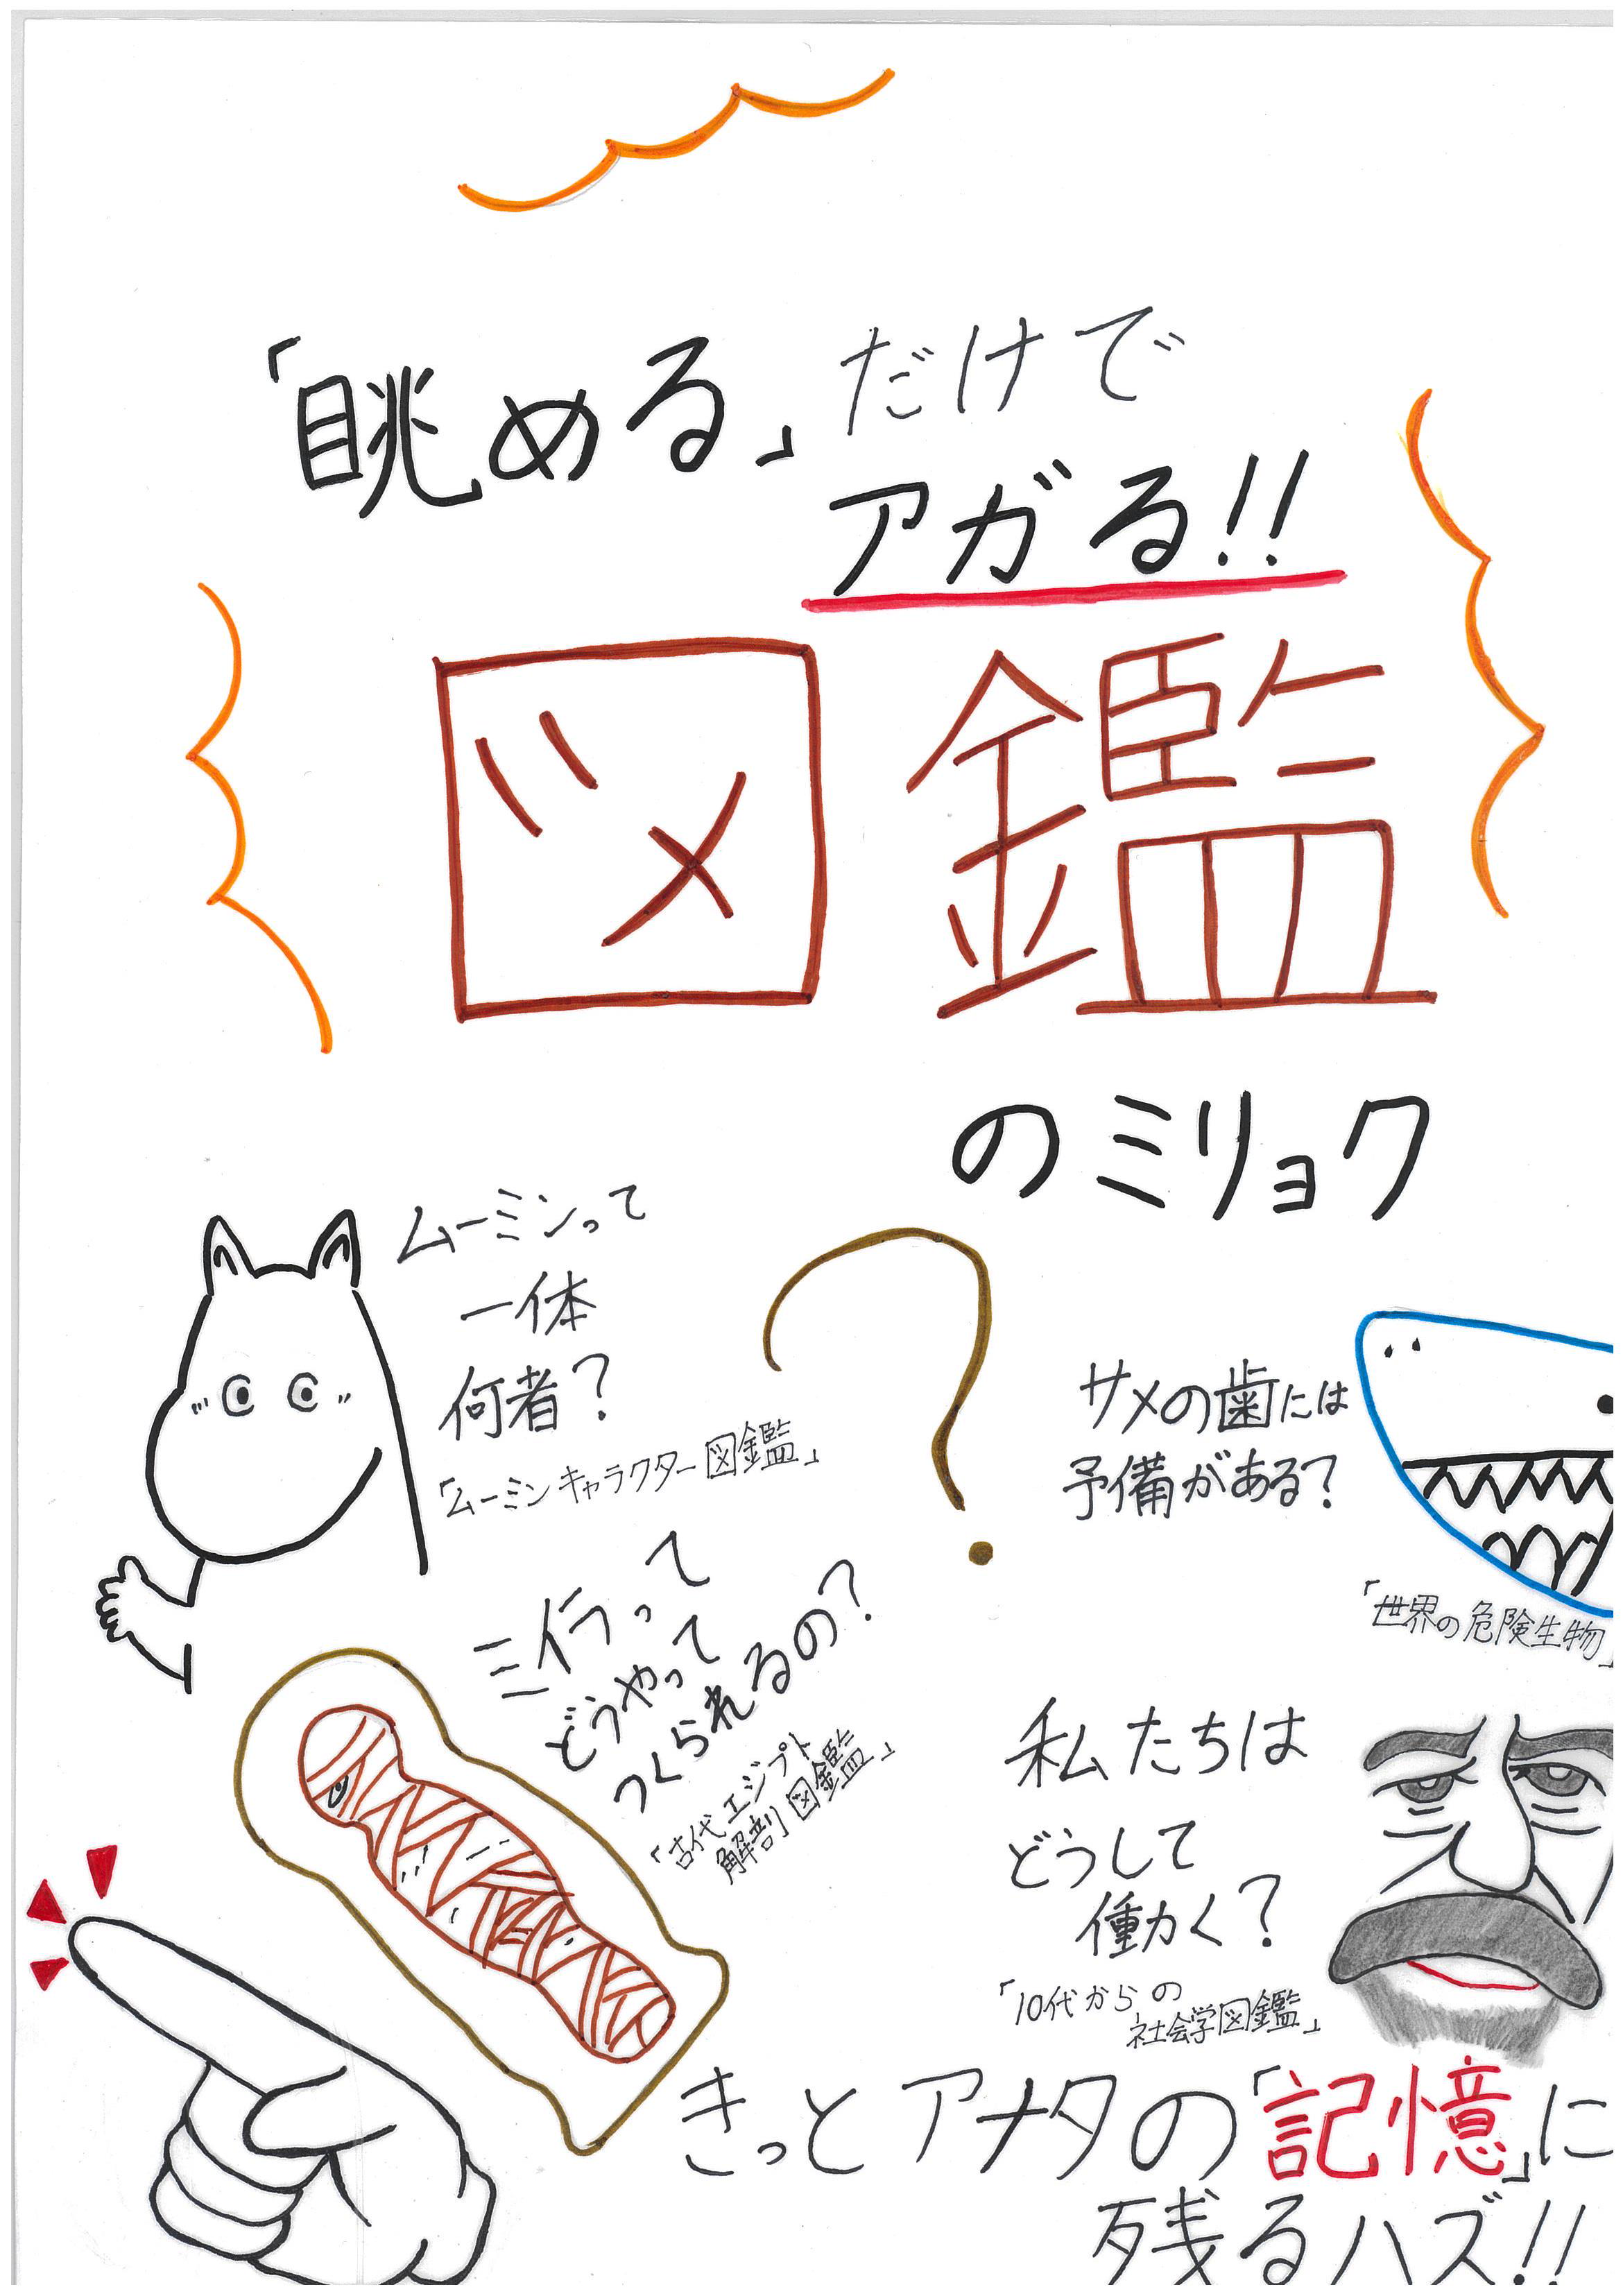 「眺める」だけで
アガる!!
図鑑
のミリョク
ムーミンって
一体
何者?
「ムーミンキャラクター図鑑」
サメの歯には
予備がある?
「世界の危険生物」
ミイラって
どうやって
つくられるの?
「古代エジプト
解剖図鑑」
私たちは
どうして
働く?
「10代からの
社会学図鑑」
きっとアナタの「記憶」に
残るハズ!!